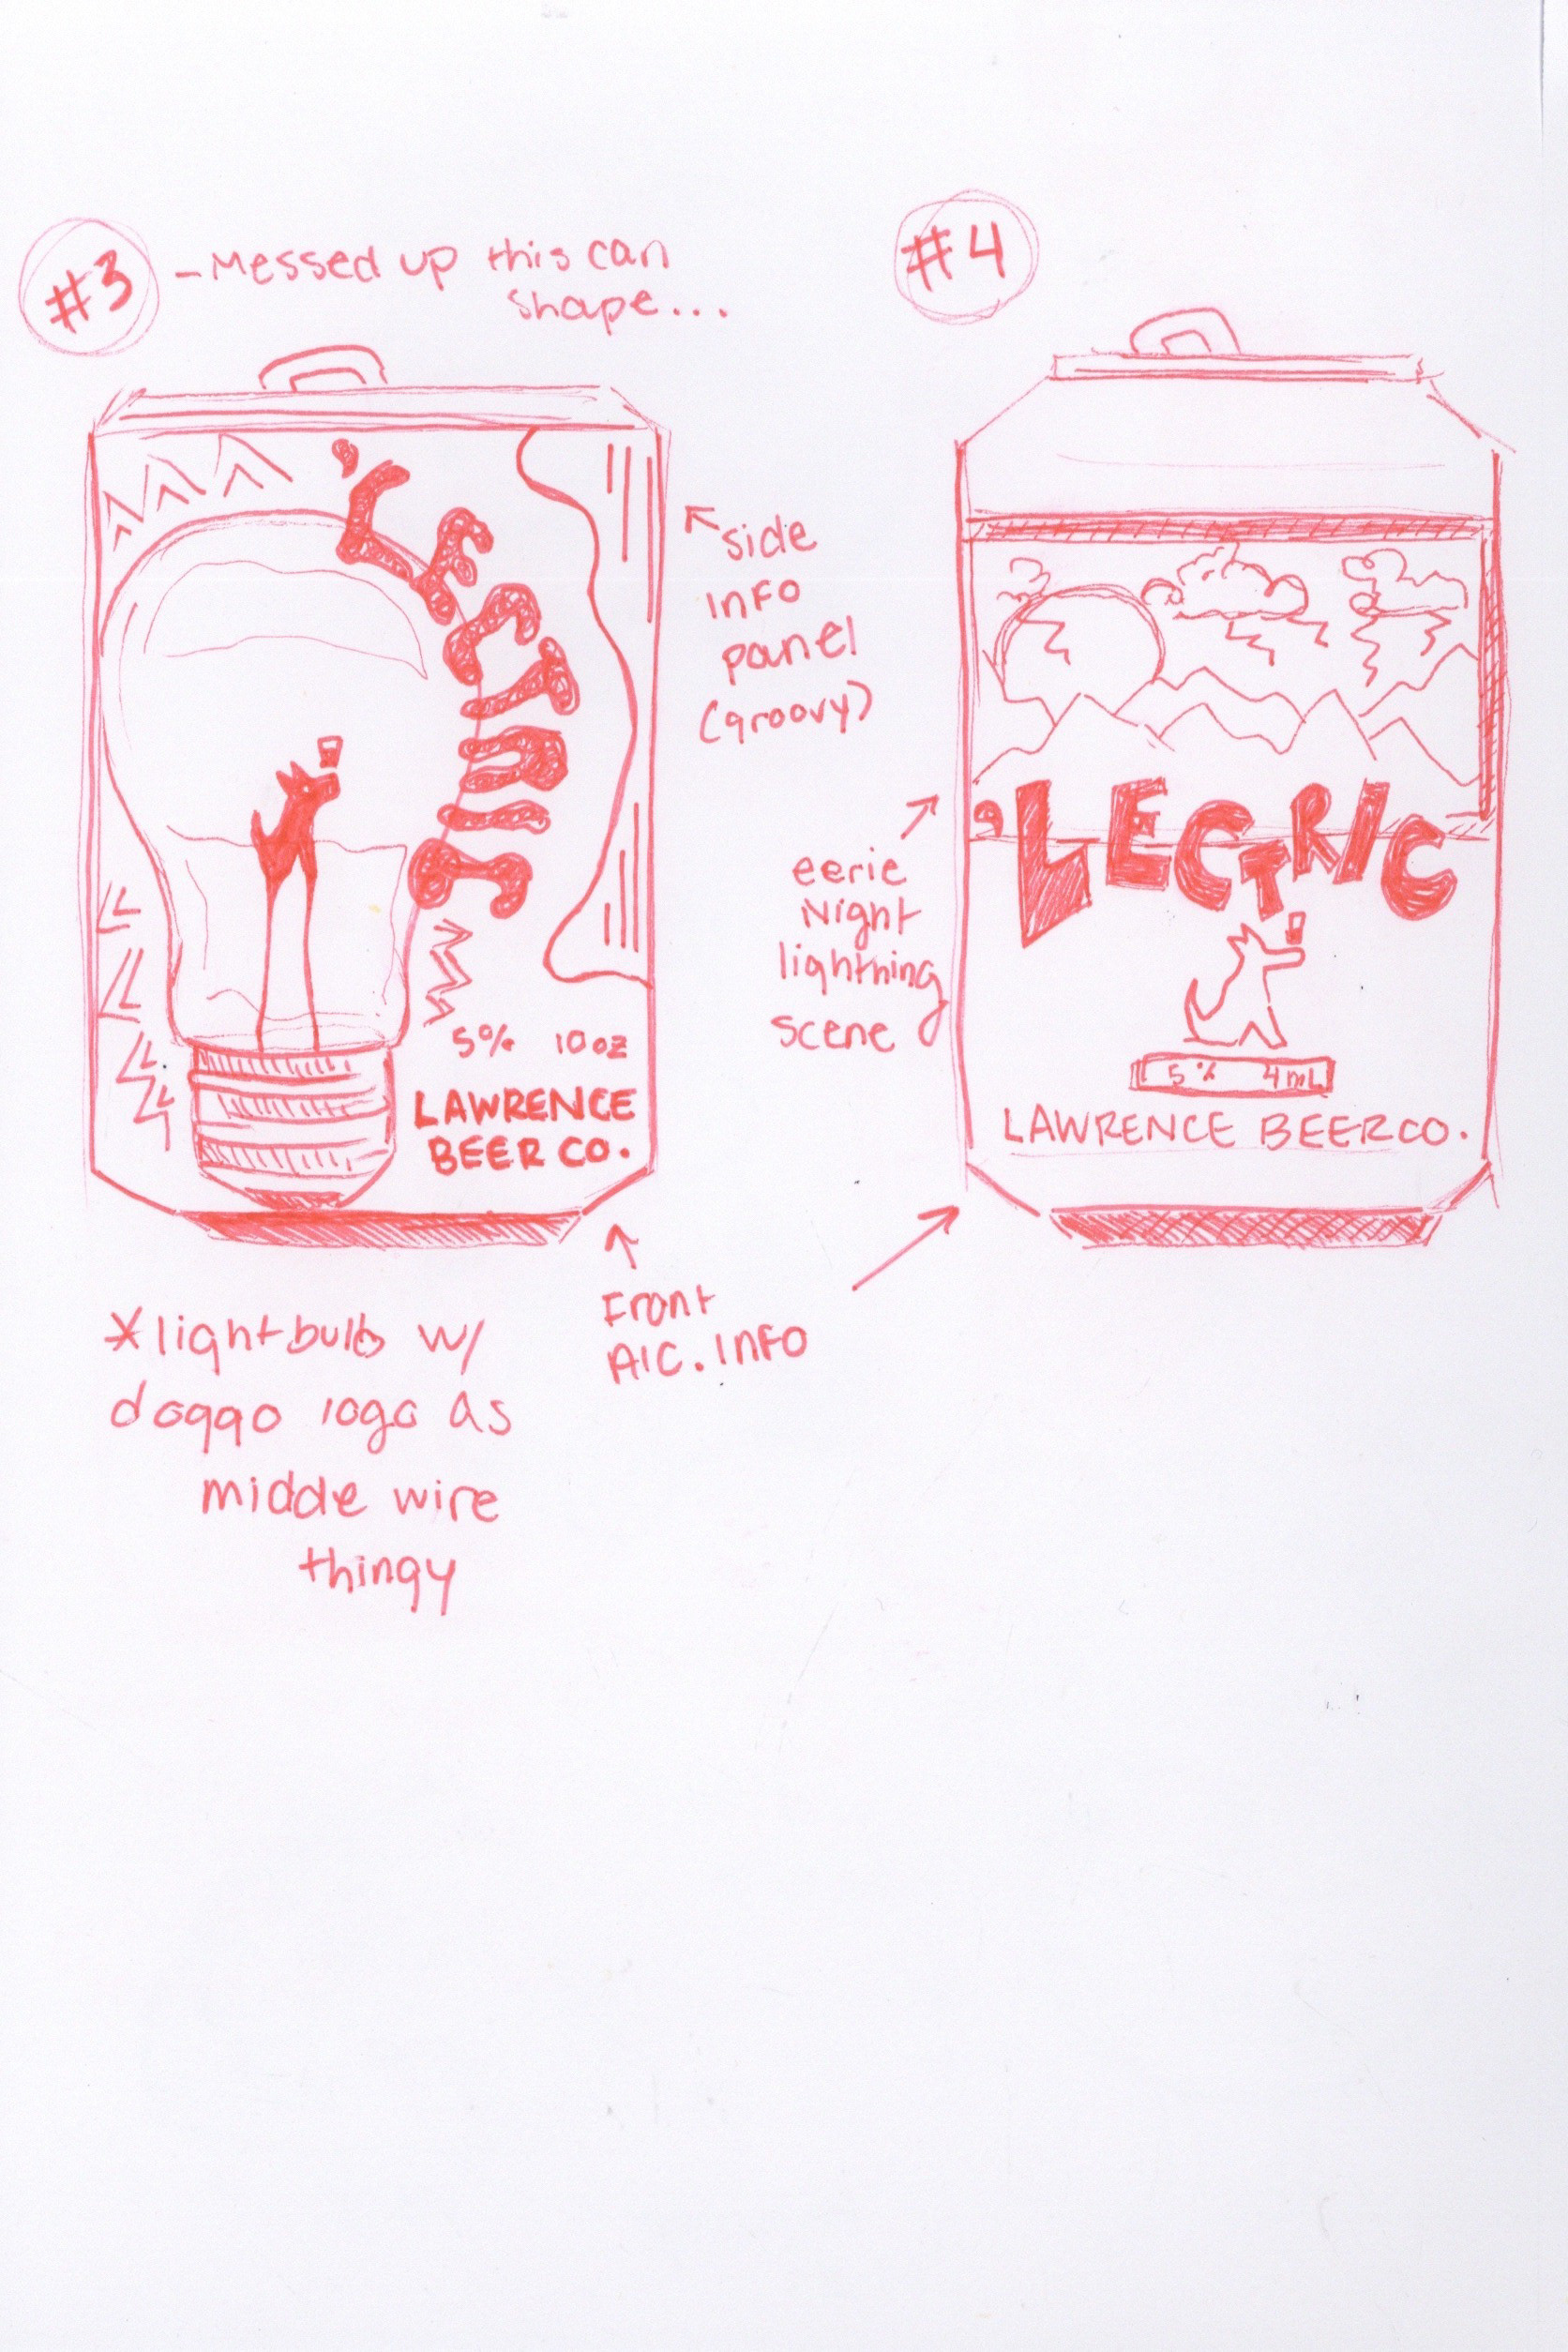 #3
- Messed up this can
shape...
'LECTRIC
side
info
panel
(groovy)
5% 10oz
LAWRENCE
BEER CO.
Front
Alc. Info
*lightbulb w/
doggo logo as
middle wire
thingy
#4
eerie
Night
lightning
scene
'LECTRIC
5% 4mL
LAWRENCE BEER CO.